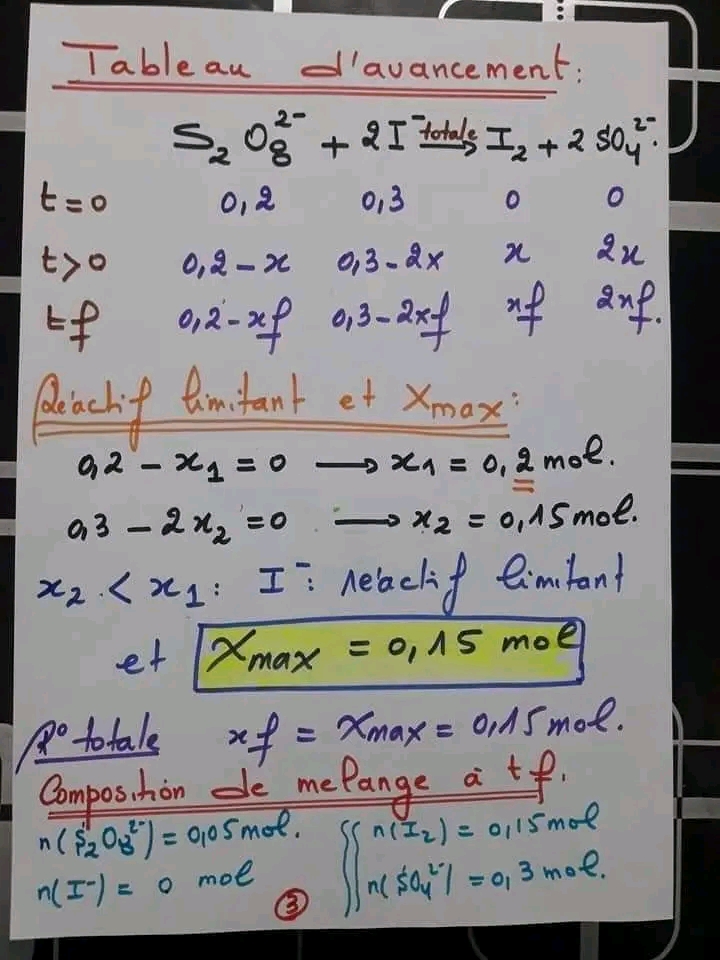 Tableau d'avancement:
S₂O₈²⁻ + 2I⁻ totale→ I₂ + 2SO₄²⁻.
t=0 0,2 0,3 0 0
t>0 0,2-x 0,3-2x x 2x
tf 0,2-xf 0,3-2xf xf 2xf.
Réactif limitant et Xmax:
0,2 - x₁ = 0 → x₁ = 0,2 mol.
0,3 - 2x₂ = 0 → x₂ = 0,15 mol.
x₂ < x₁: I⁻: réactif limitant
et Xmax = 0,15 mol
R° totale xf = Xmax = 0,15 mol.
Composition de melange à tf.
n(S₂O₈²⁻) = 0,05 mol. n(I₂) = 0,15 mol
n(I⁻) = 0 mol n(SO₄²⁻) = 0,3 mol.
3